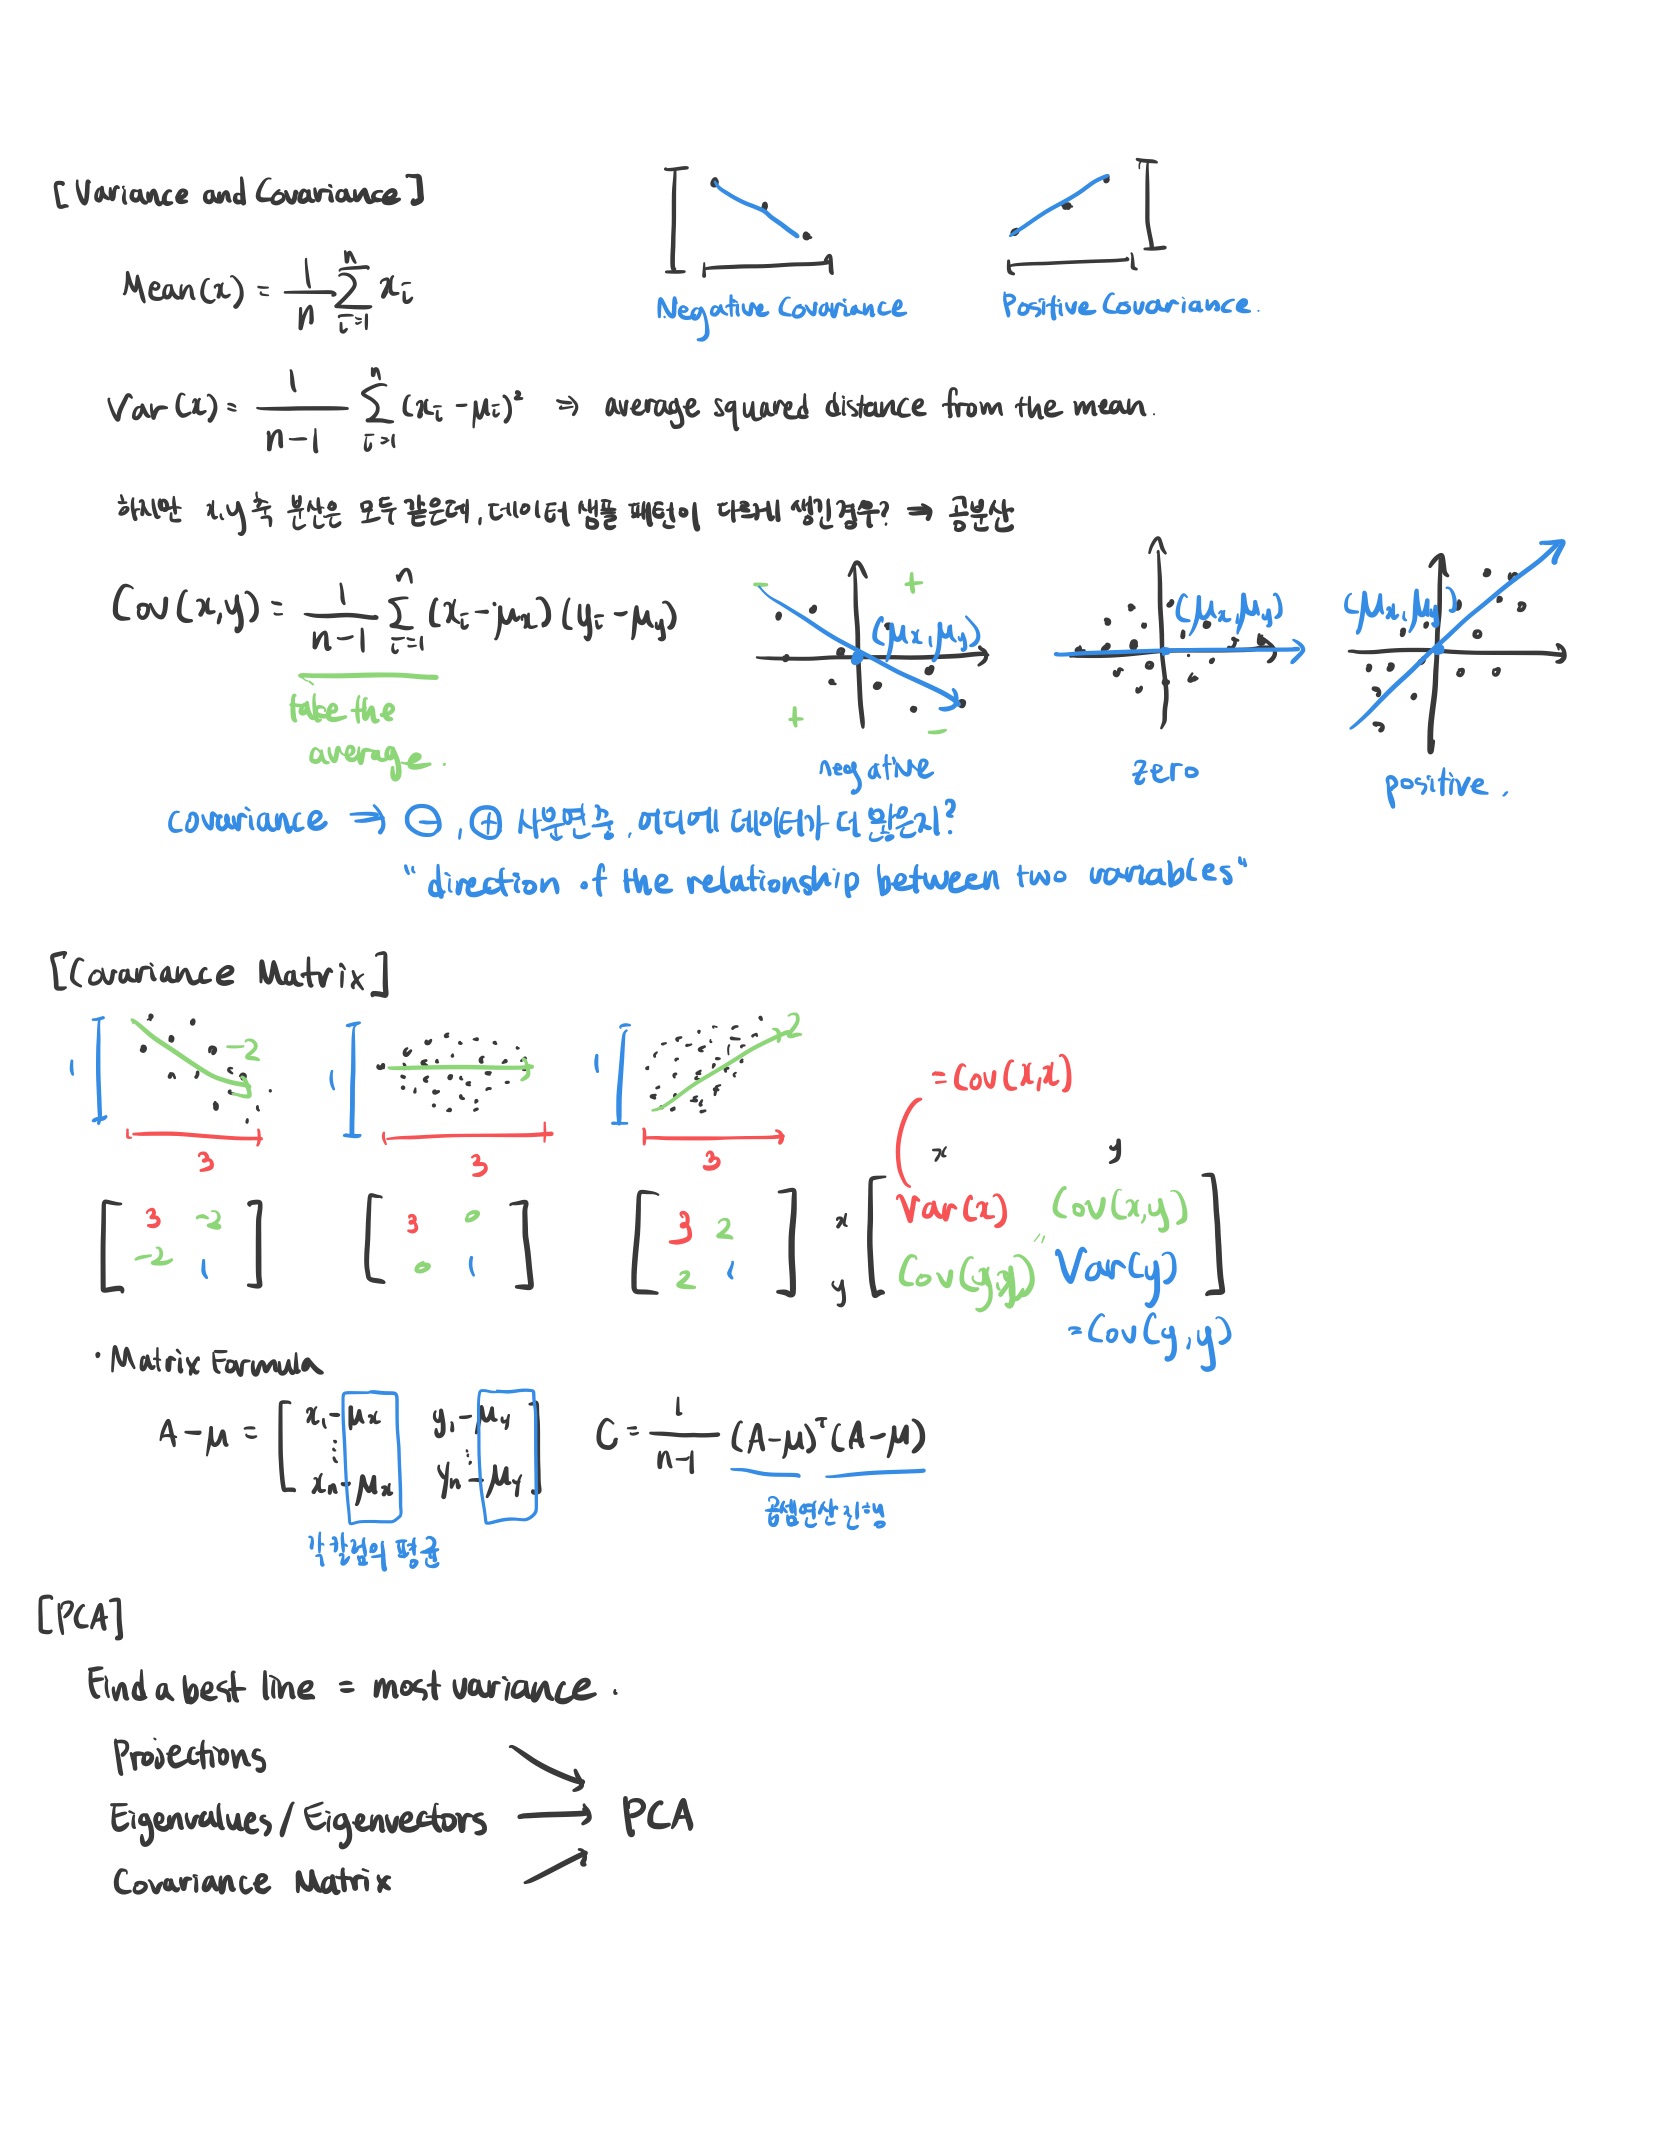 [Variance and Covariance]
Negative Covariance
Positive Covariance.
Mean(x) = 1/n Σ_{i=1}^{n} x_i
Var(x) = 1/(n-1) Σ_{i=1}^{n} (x_i - μ_i)² ⇒ average squared distance from the mean.
하지만 x,y축 분산은 모두 같은데, 데이터 샘플 패턴이 다르게 생긴경우? ⇒ 공분산
Cov(x,y) = 1/(n-1) Σ_{i=1}^{n} (x_i - μ_x)(y_i - μ_y)
take the
average.
- +
+ -
(μx, μy)
negative
(μx, μy)
zero
(μx, μy)
positive.
covariance ⇒ ⊖, ⊕ 사분면중, 어디에 데이터가 더 많은지?
"direction of the relationship between two variables"
[Covariance Matrix]
1 -2 3
1 3
1 2 3
[3 -2
-2 1]
[3 0
0 1]
[3 2
2 1]
= Cov(x,x)
x y
x [Var(x) Cov(x,y)
y Cov(y,x) " Var(y)]
= Cov(y,y)
· Matrix Formula
A - μ = [x₁ - μx y₁ - μy
⋮ ⋮
xn - μx yn - μy]
각 칼럼의 평균
C = 1/(n-1) (A-μ)ᵀ(A-μ)
곱셈연산진행
[PCA]
Find a best line = most variance.
Projections
Eigenvalues / Eigenvectors → PCA
Covariance Matrix